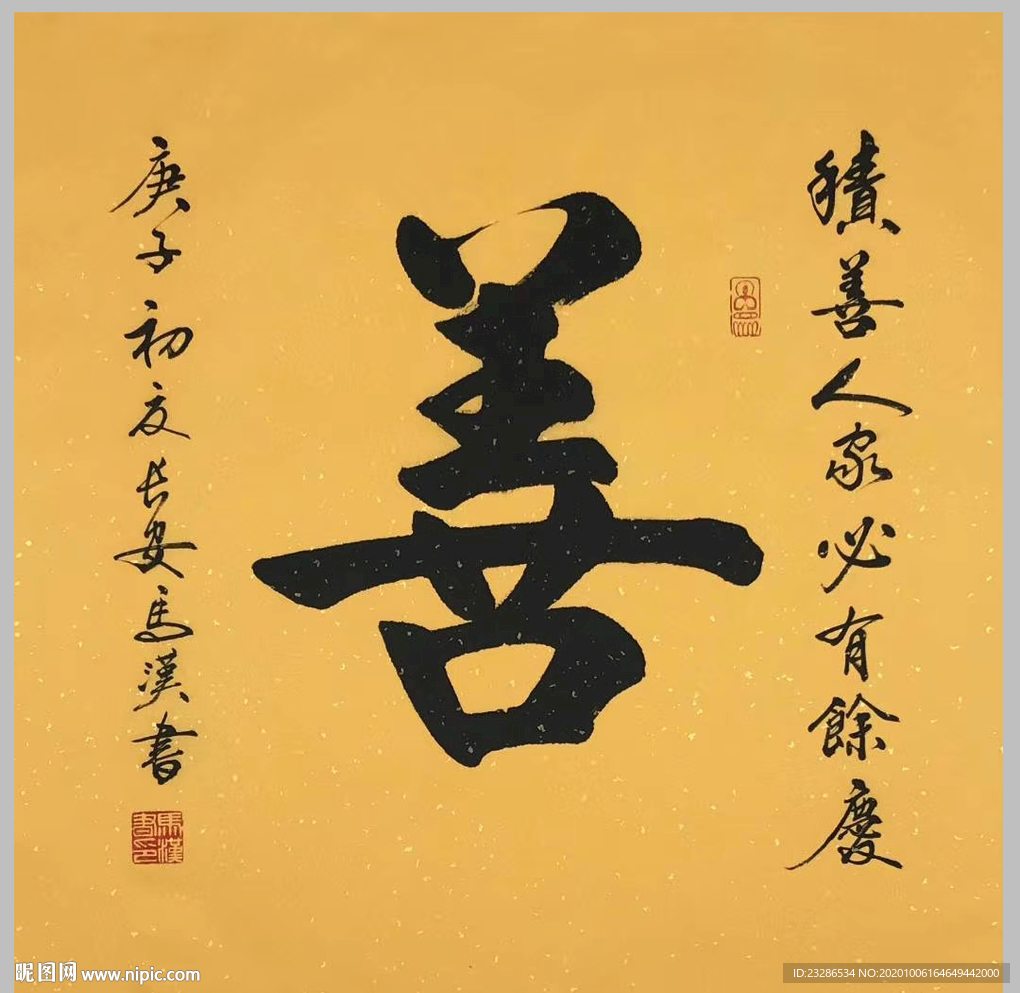 積善人家必有餘慶
善
庚子初夏長安馬漢書
馬漢書印
昵图网 www.nipic.com
ID:23286534 NO:20201006164649442000